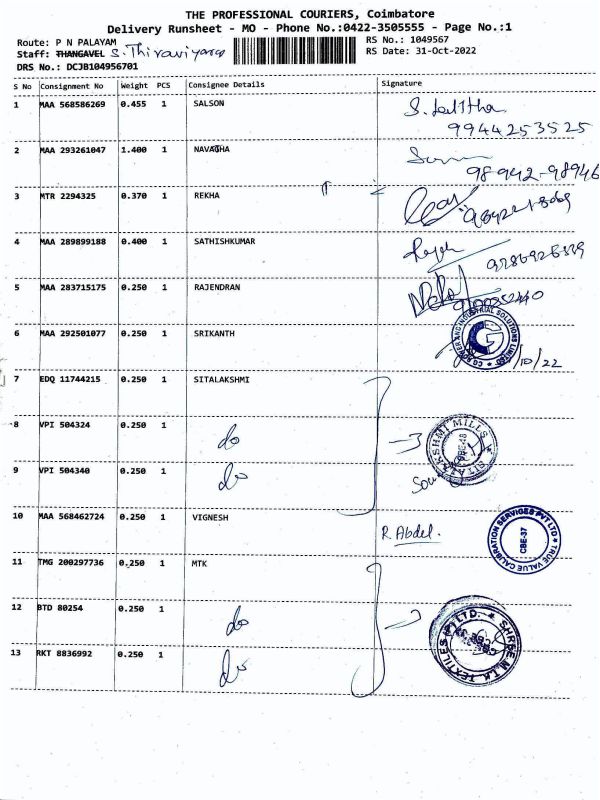 THE PROFESSIONAL COURIERS, Coimbatore
Delivery Runsheet - MO - Phone No.:0422-3505555 - Page No.:1
Route: P N PALAYAM
RS No.: 1049567
Staff: THANGAVEL S.
RS Date: 31-Oct-2022
DRS No.: DCJB104956701
S No Consignment No Weight PCS Consignee Details Signature
1 MAA 568586269 0.455 1 SALSON S. Lalitha
9944253525
2 MAA 293261047 1.400 1 NAVATHA
98942-98946
3 MTR 2294325 0.370 1 REKHA
4 MAA 289899188 0.400 1 SATHISHKUMAR
5 MAA 283715175 0.250 1 RAJENDRAN
6 MAA 292501077 0.250 1 SRIKANTH
/10/22
7 EDQ 11744215 0.250 1 SITALAKSHMI
8 VPI 504324 0.250 1 do
SITALAKSHMI MILLS
9 VPI 504340 0.250 1 do
10 MAA 568462724 0.250 1 VIGNESH R. Abdel.
TRUE VALUE CALIBRATION SERVICES PVT LTD
CBE-37
11 TMG 200297736 0.250 1 MTK
12 BTD 80254 0.250 1 do
SHREE M.T.K. TEXTILES (P) LTD.
13 RKT 8836992 0.250 1 do